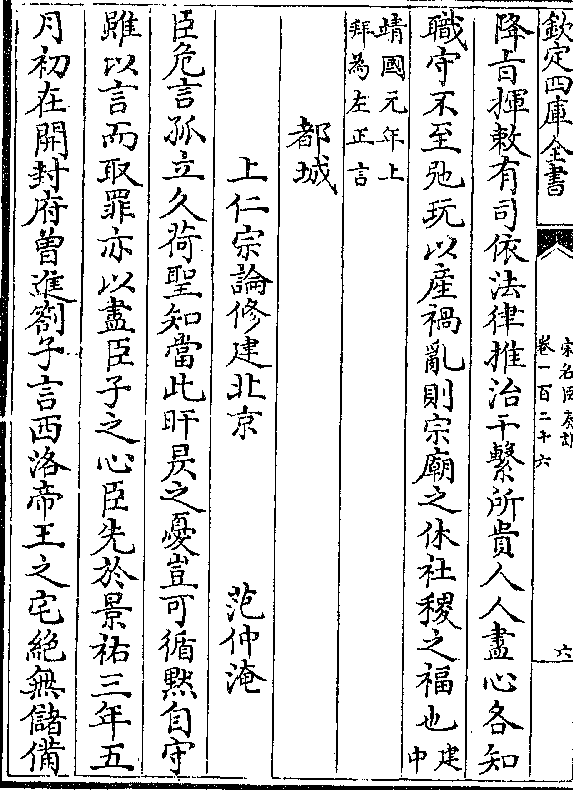 欽定四庫全書
宋名臣奏議
卷一百二十六
六
降㫖揮敕有司依法律推治干繫所貴人人盡心各知
職守不至弛玩以產禍亂則宗廟之休社稷之福也建中
靖國元年上
拜為左正言
都城
上仁宗論修建北京 范仲淹
臣危言孤立久荷聖知當此旰昃之憂豈可循默自守
雖以言而取罪亦以盡臣子之心臣先於景祐三年五
月初在開封府曾進劄子言西洛帝王之宅絶無儲備